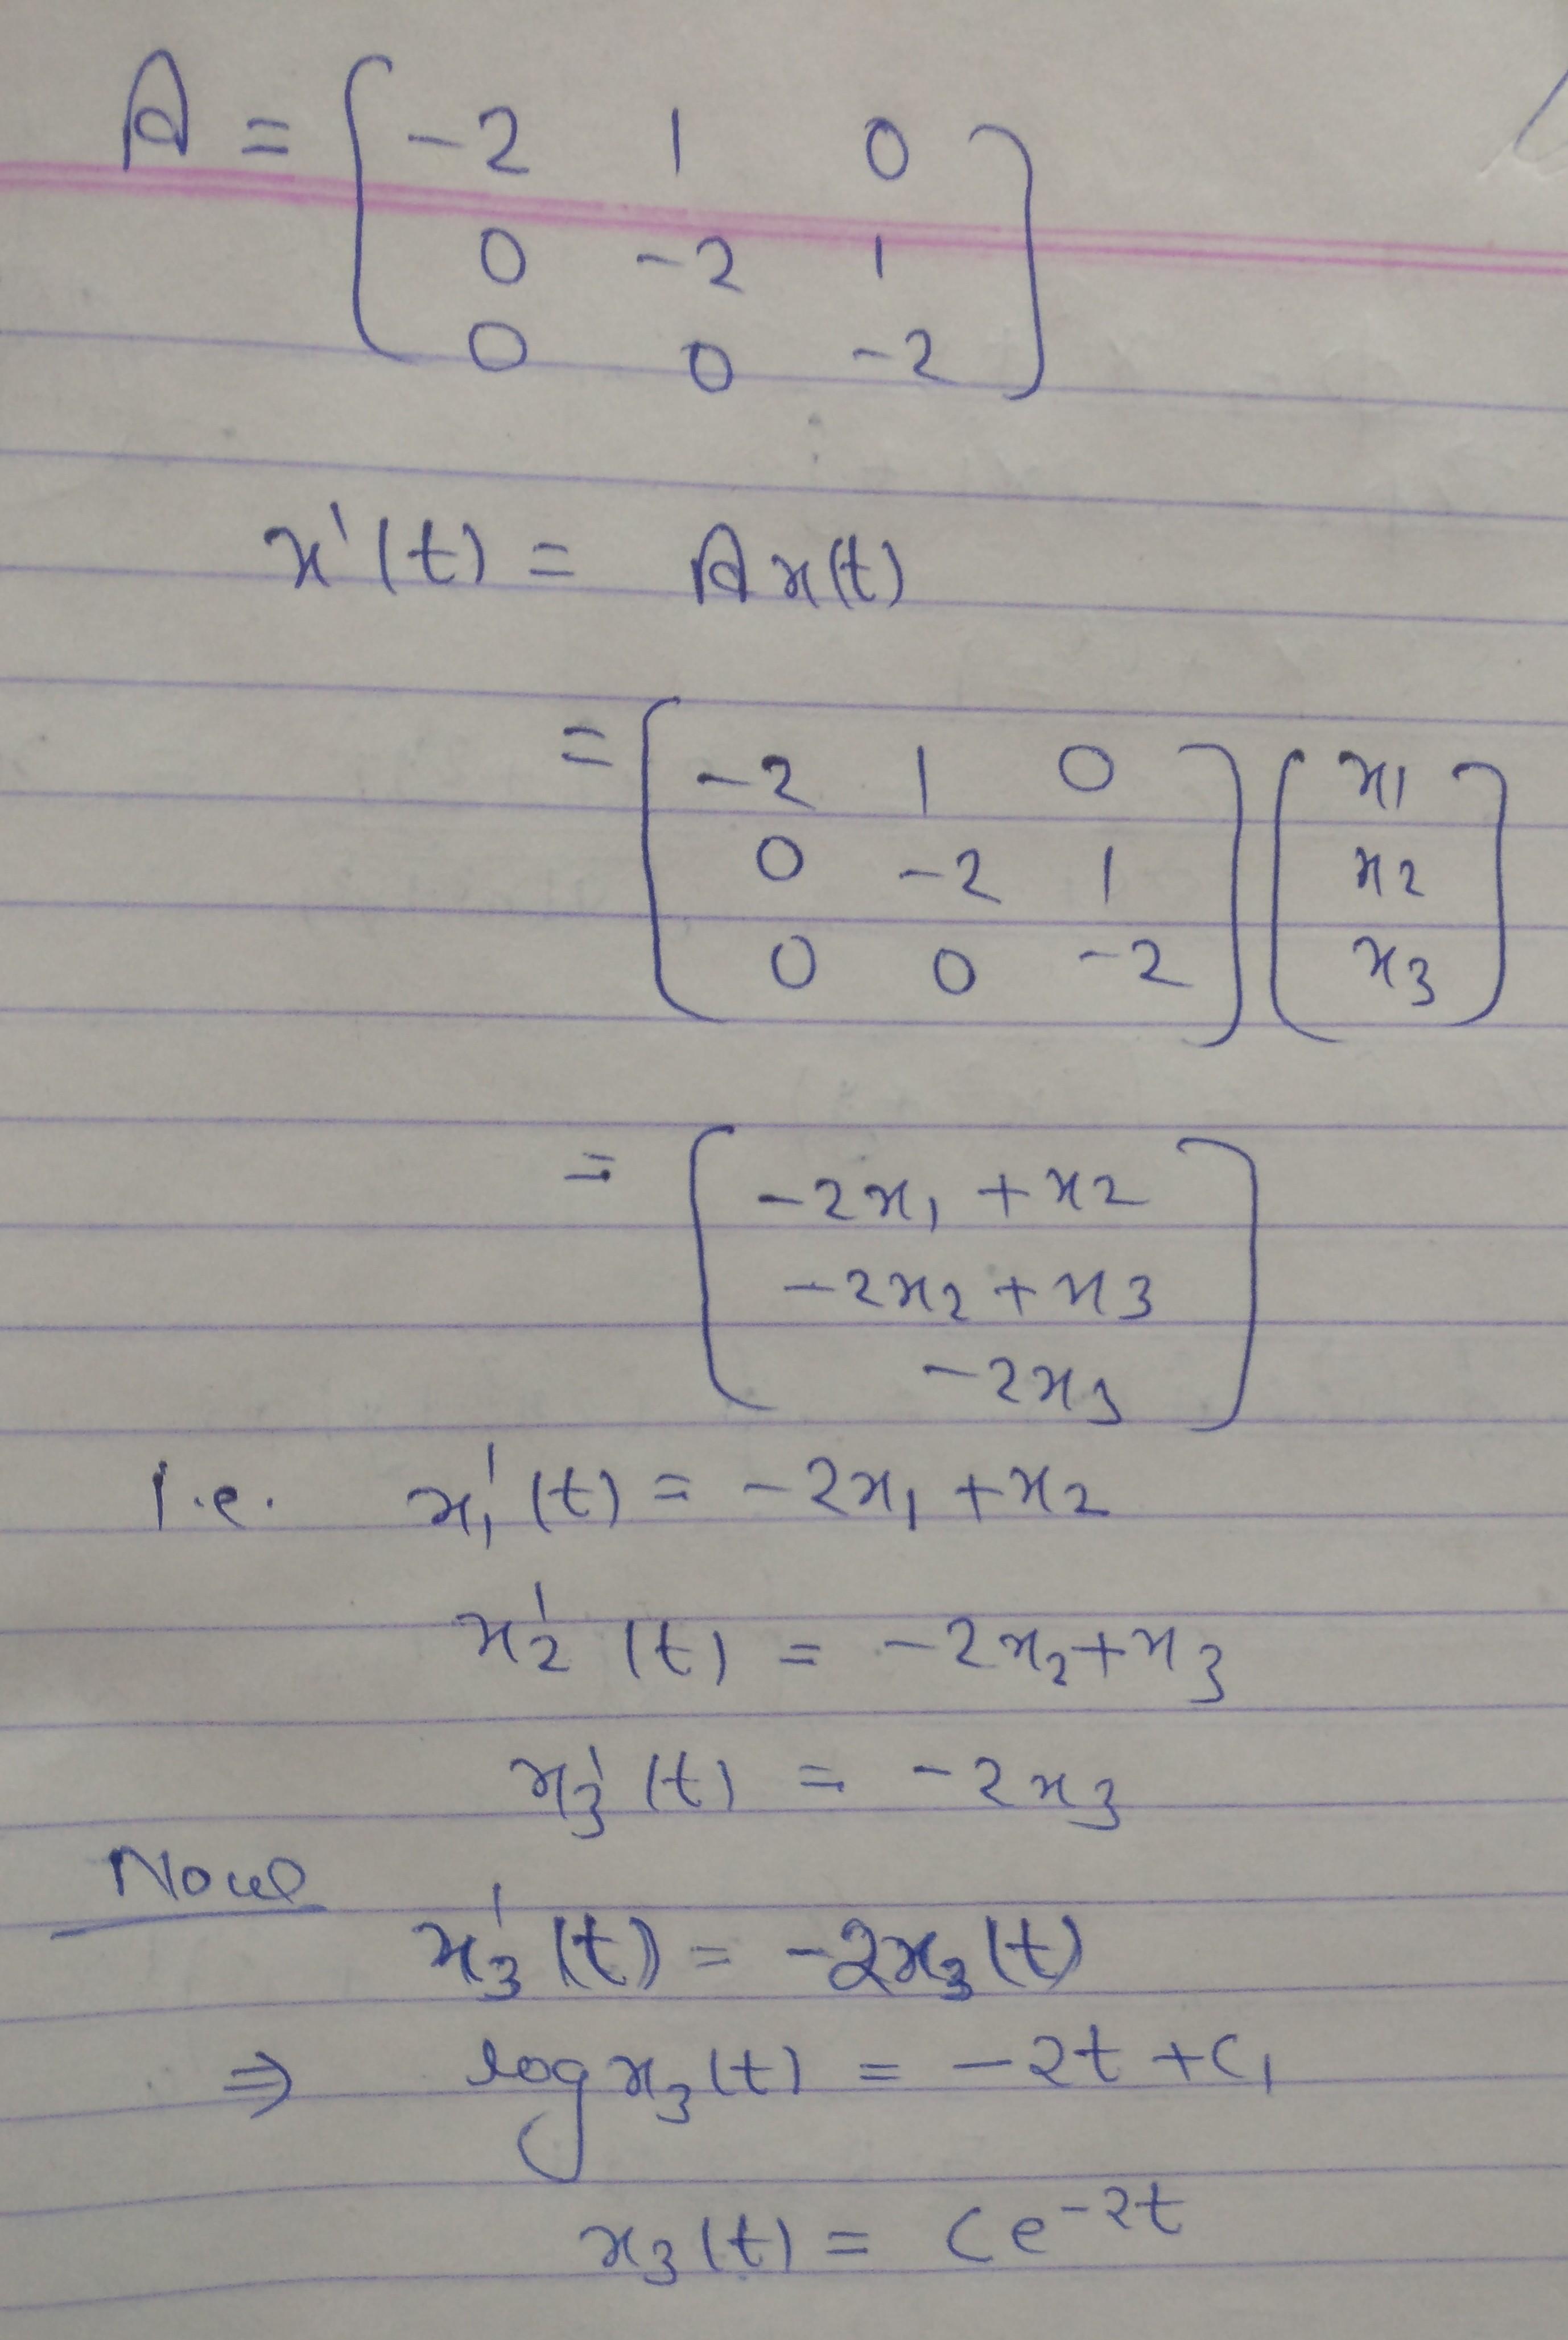 A = [ -2 1 0
0 -2 1
0 0 -2 ]
x'(t) = Ax(t)
= [ -2 1 0 ] [ x1 ]
0 -2 1 x2
0 0 -2 x3
= [ -2x1 + x2
-2x2 + x3
-2x3 ]
i.e. x1'(t) = -2x1 + x2
x2'(t) = -2x2 + x3
x3'(t) = -2x3
Now
x3'(t) = -2x3(t)
⇒ log x3(t) = -2t + C1
x3(t) = Ce^-2t